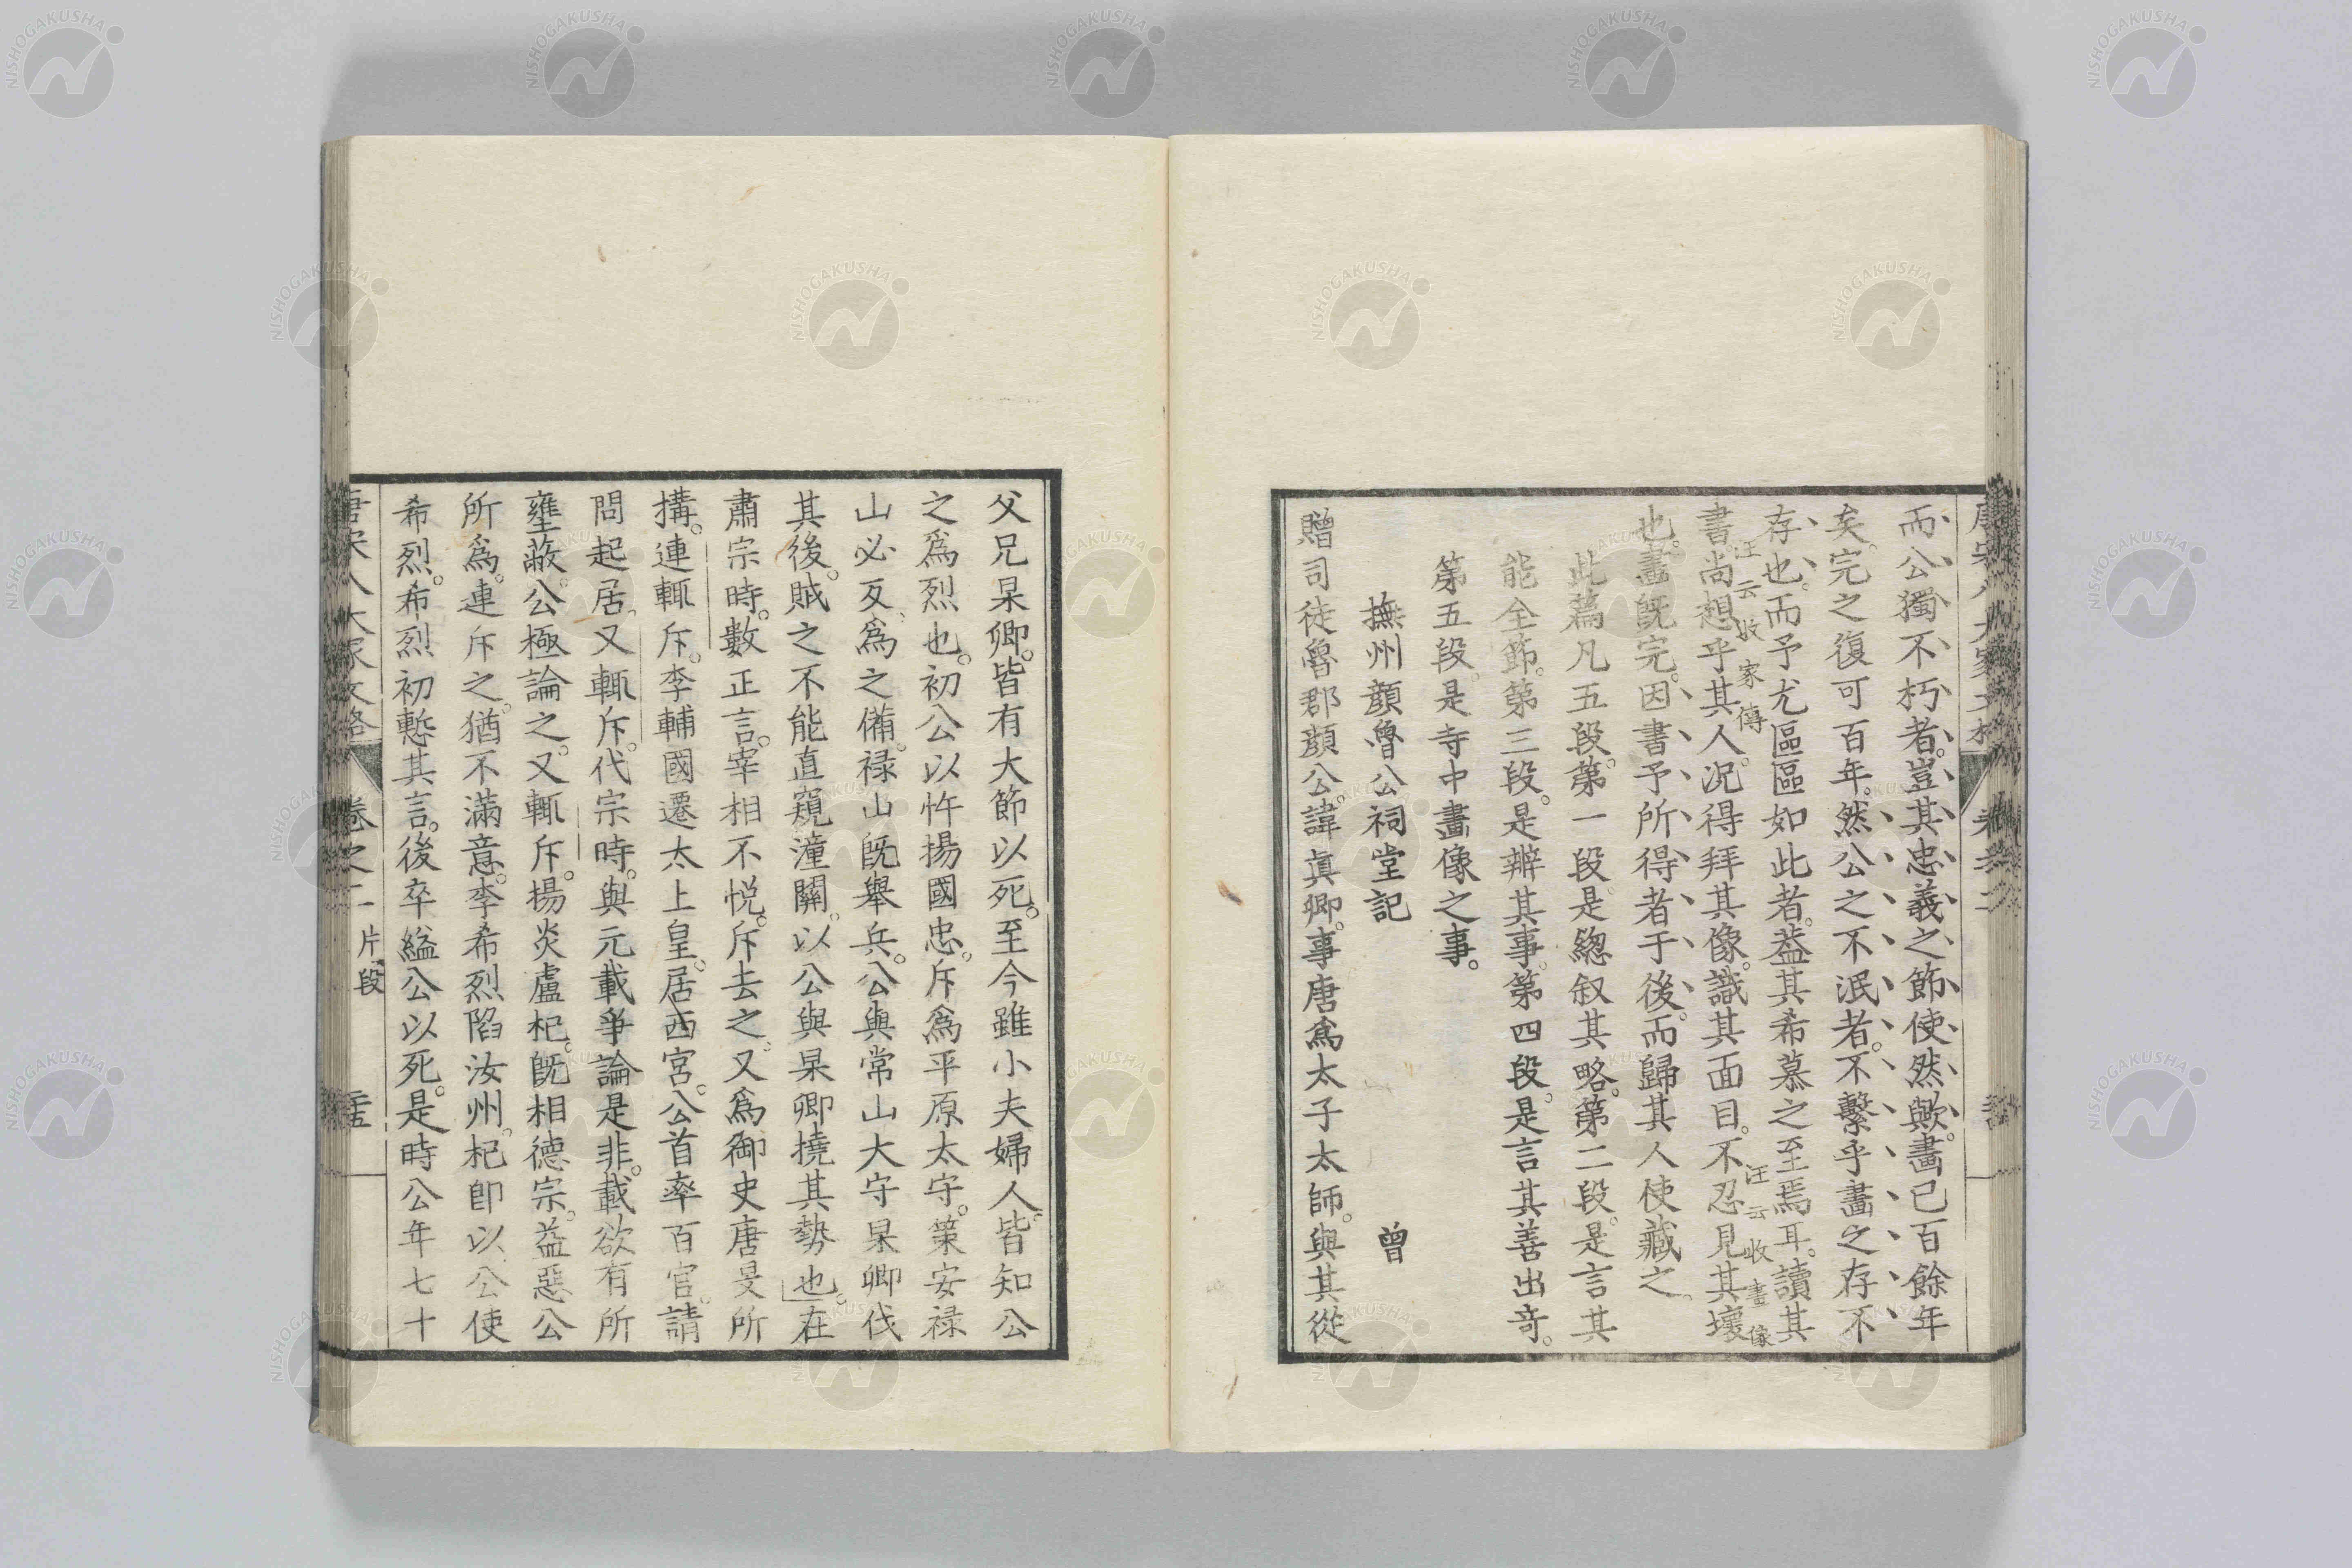 而公獨不朽者。豈其忠義之節使然歟。畫已百餘年
矣。完之復可百年。然公之不泯者。不繫乎畫之存不
存也。而予尤區區如此者。蓋其希慕之至焉耳。讀其
汪云收家傳
汪云收畫像
書。尚想乎其人。況得拜其像。識其面目。不忍見其壞
也。畫既完。因書予所得者于後。而歸其人使藏之。
此篇凡五段。第一段。是總叙其略。第二段。是言其
能全節。第三段。是辨其事。第四段。是言其善出奇。
第五段。是寺中畫像之事。
撫州顏魯公祠堂記 曾
贈司徒魯郡顏公。諱眞卿。事唐爲太子太師。與其從
父兄杲卿。皆有大節以死。至今雖小夫婦人。皆知公
之爲烈也。初公以忤揚國忠。斥爲平原太守。策安禄
山必反。爲之備。禄山既舉兵。公與常山大守杲卿伐
其後。賊之不能直窺潼關。以公與杲卿撓其勢也。在
肅宗時。數正言。宰相不悦。斥去之。又爲御史唐旻所
搆。連輒斥。李輔國遷太上皇。居西宮。公首率百官。請
問起居。又輒斥。代宗時。與元載爭論是非。載欲有所
壅蔽。公極論之。又輒斥。揚炎盧杞。既相德宗。益惡公
所爲。連斥之。猶不滿意。李希烈陷汝州。杞卽以公使
希烈。希烈初慙其言。後卒縊公以死。是時公年七十
唐宋八大家文格 卷之二 片段 三十五
NISHOGAKUSHA